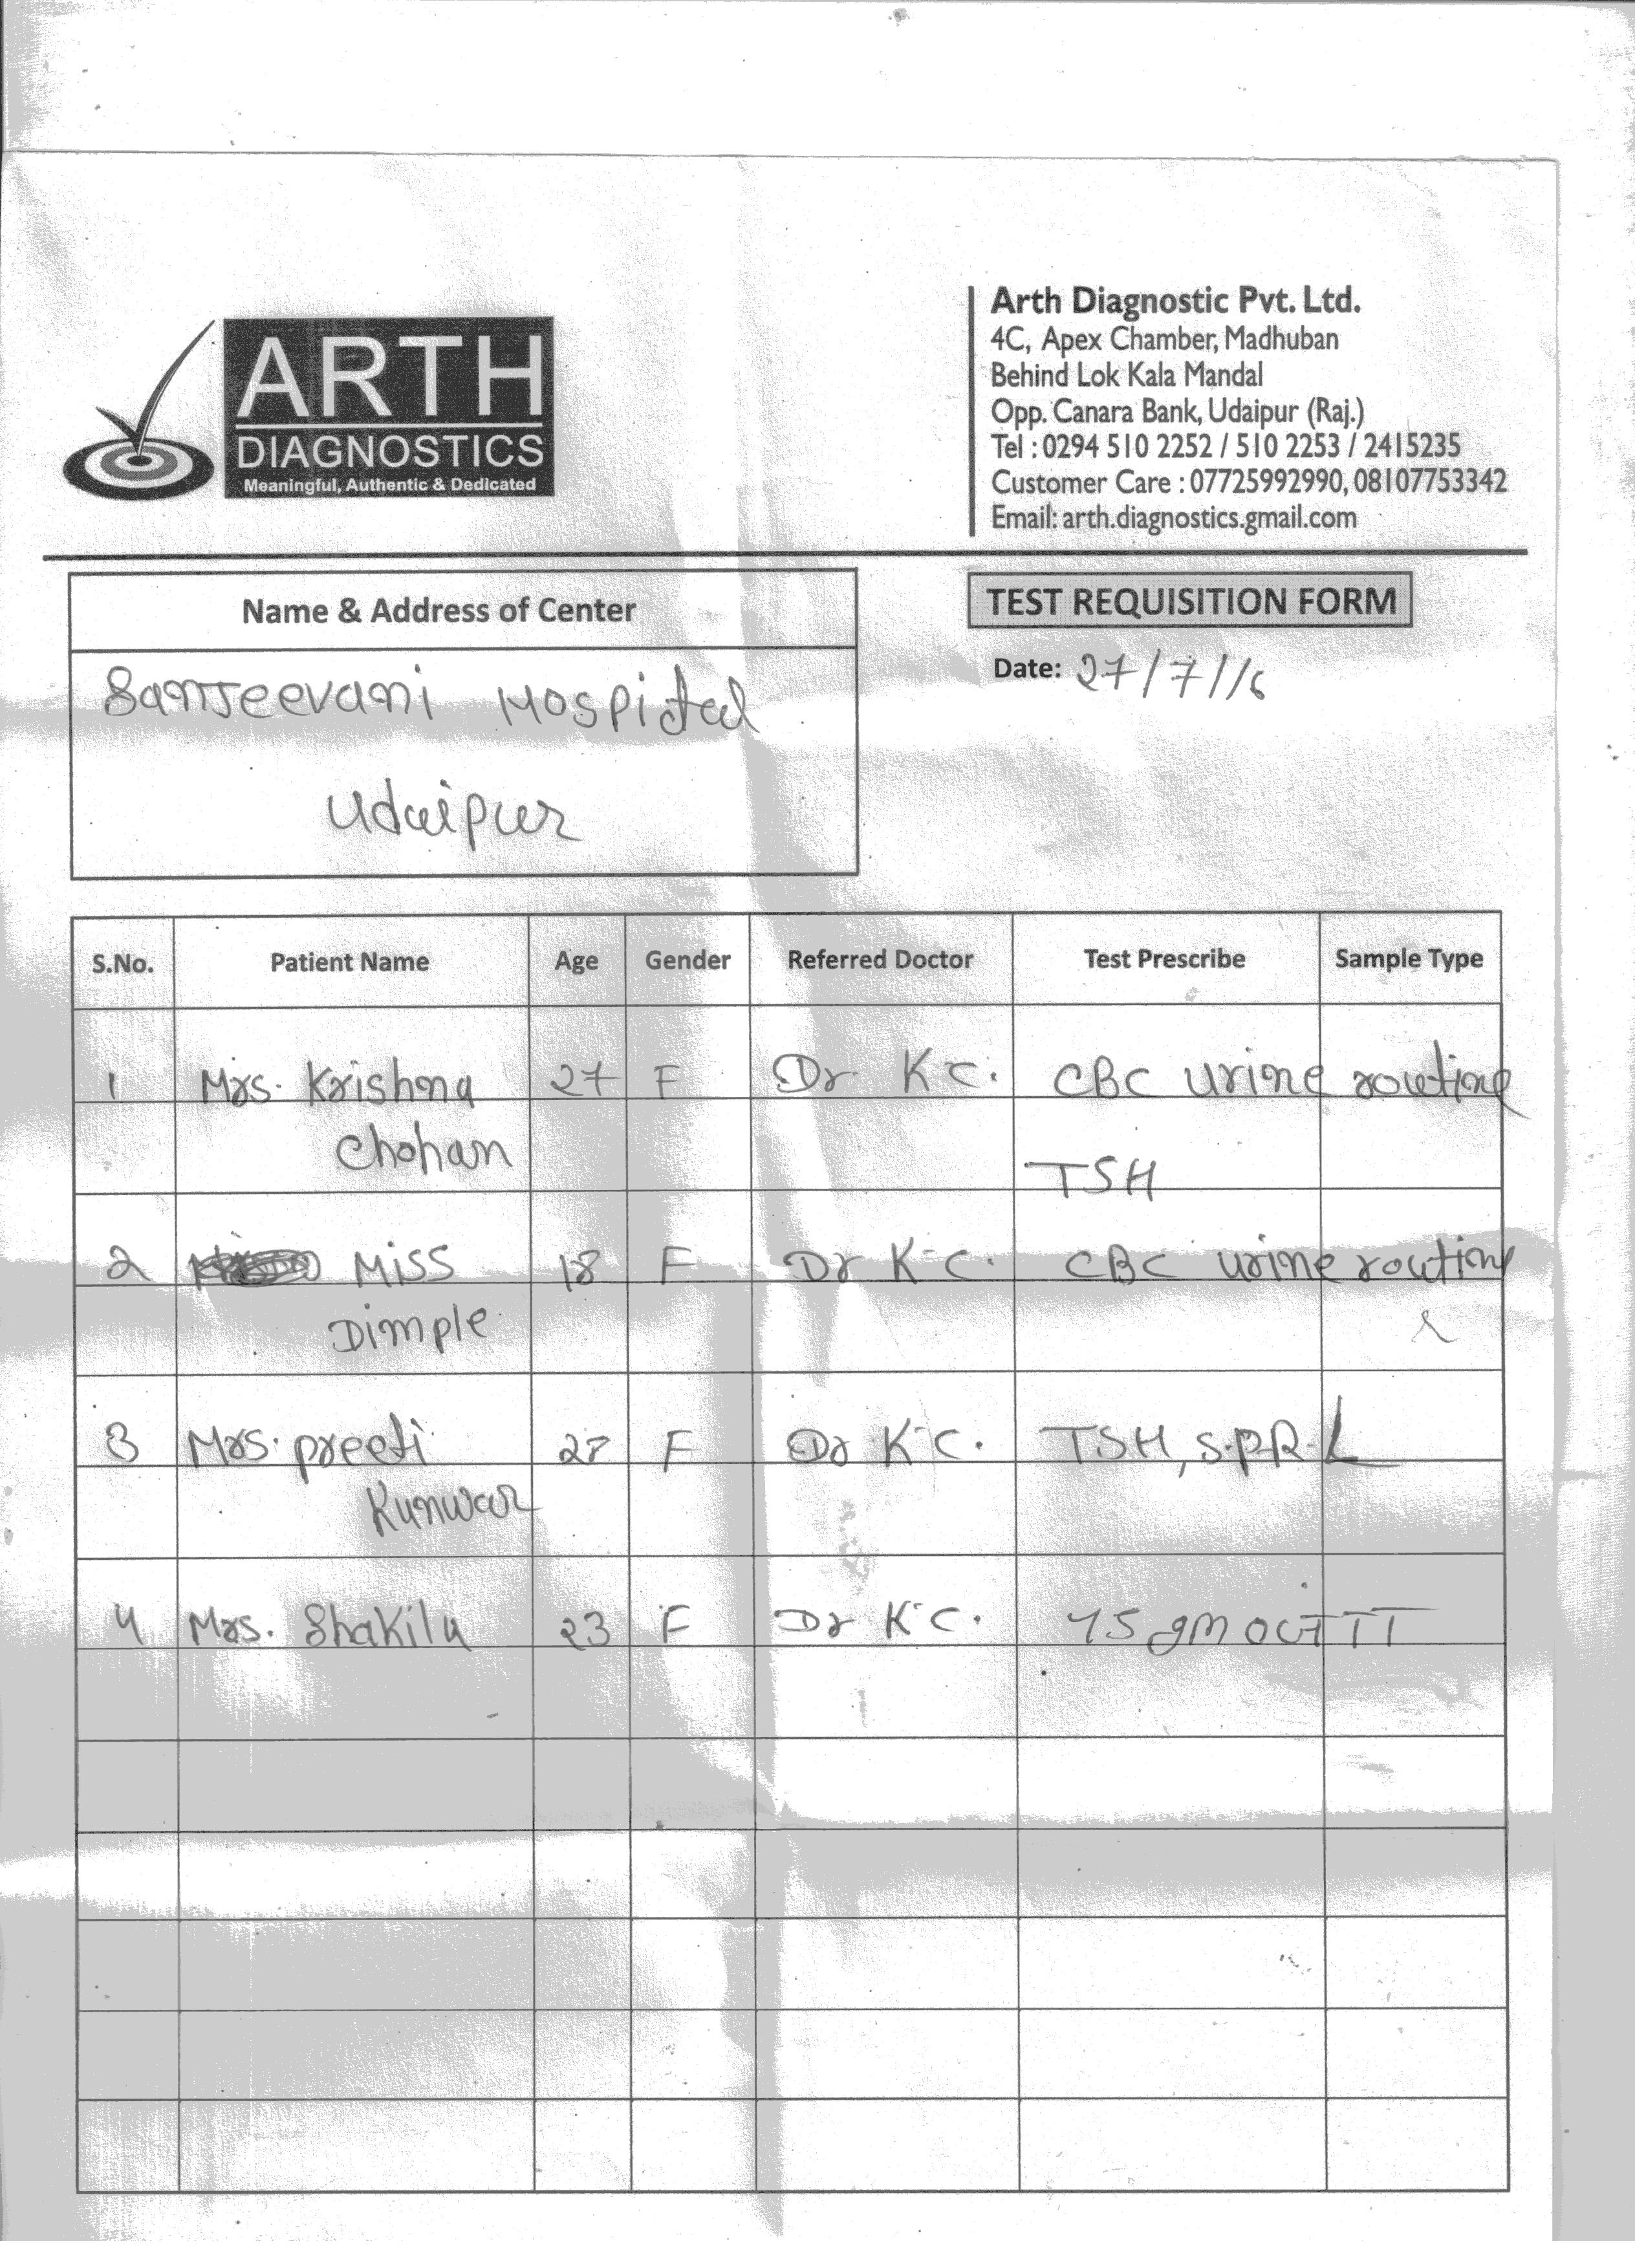 ARTH
DIAGNOSTICS
Meaningful, Authentic & Dedicated
Arth Diagnostic Pvt. Ltd.
4C, Apex Chamber, Madhuban
Behind Lok Kala Mandal
Opp. Canara Bank, Udaipur (Raj.)
Tel : 0294 510 2252 / 510 2253 / 2415235
Customer Care : 07725992990, 08107753342
Email: arth.diagnostics.gmail.com
Name & Address of Center
Sanjeevani Hospital
Udaipur
TEST REQUISITION FORM
Date: 27/7/16
S.No. Patient Name Age Gender Referred Doctor Test Prescribe Sample Type
1 Mrs. Krishna 27 F Dr. K.C. CBC urine routine
Chohan TSH
2 Miss 18 F Dr K.C. CBC urine routine
Dimple
3 Mrs. preeti F Dr K.C. TSH, S.P.R.L
Kunwar
4 Mrs. Shakila 23 F Dr K.C. 75 gm OGTT